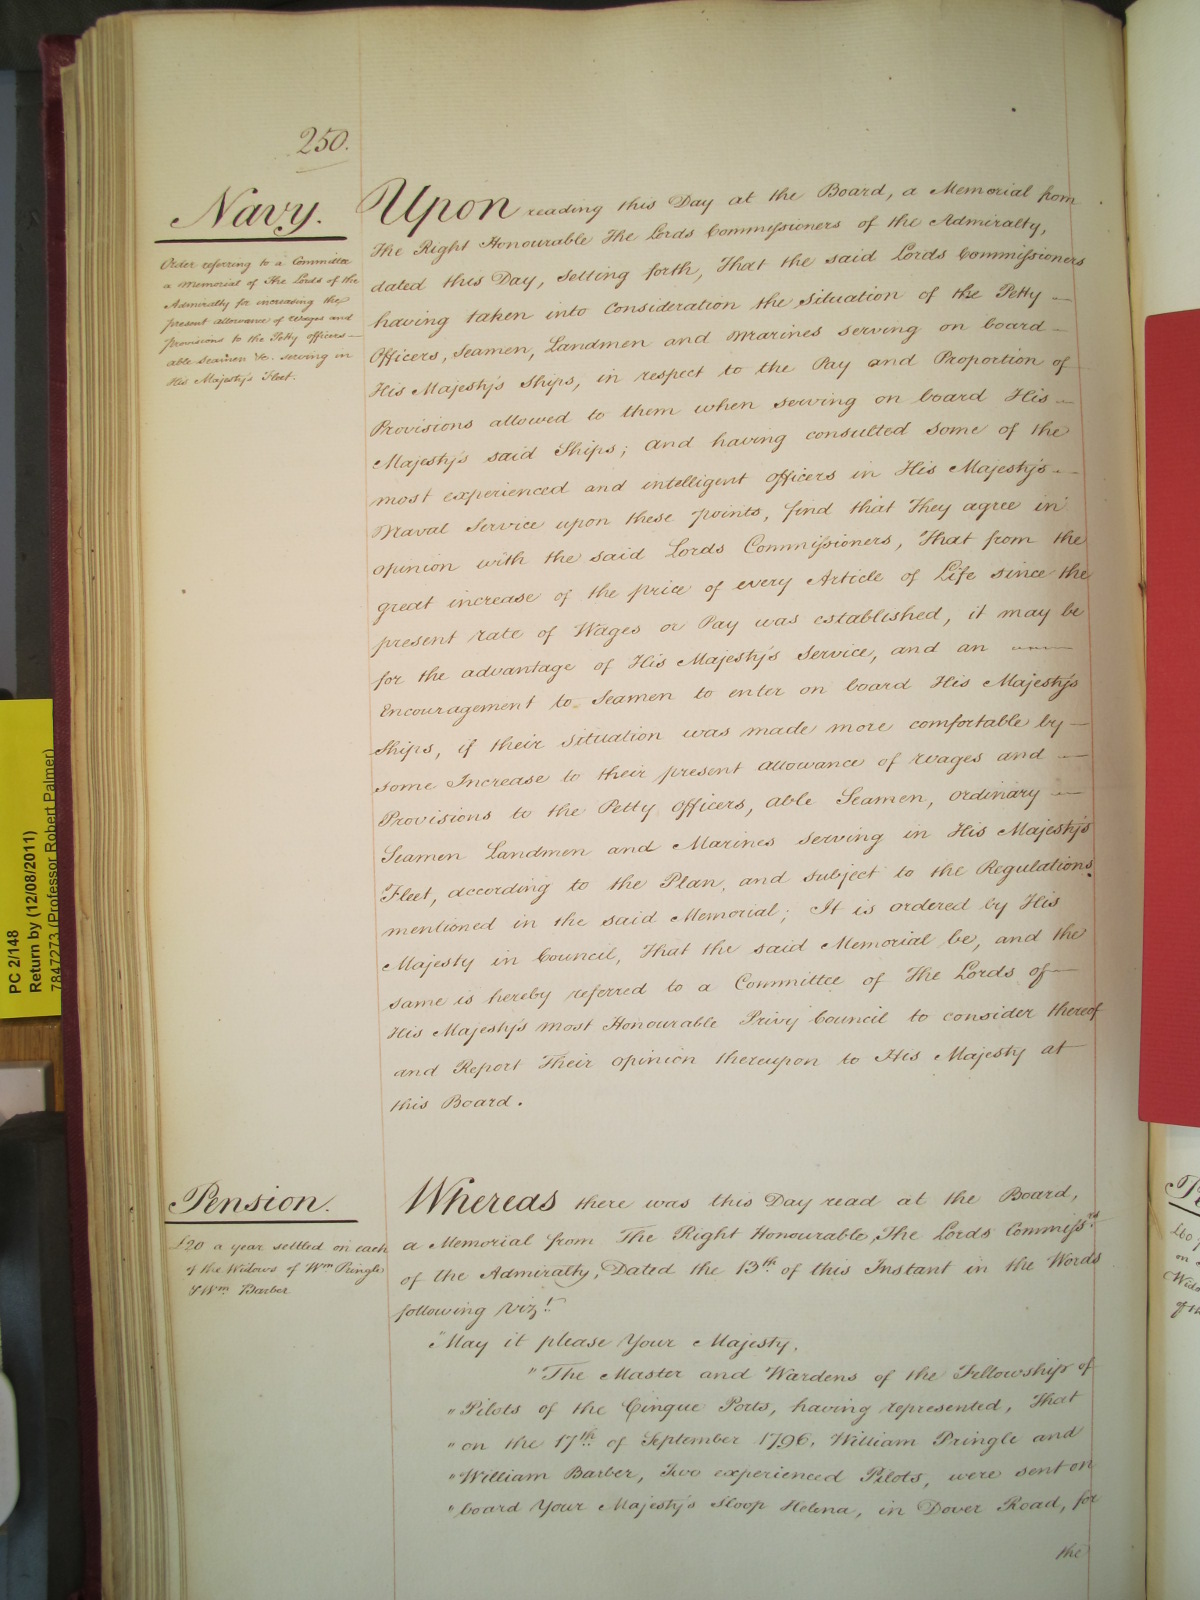 250.
Navy.
Order referring to a Committee
a Memorial of The Lords of the
Admiralty for increasing the
present allowance of Wages and
provisions to the Petty officers
able Seamen &c. serving in
His Majesty's Fleet.
Upon reading this Day at the Board, a Memorial from
The Right Honourable The Lords Commissioners of the Admiralty,
dated this Day, setting forth, That the said Lords Commissioners
having taken into Consideration the Situation of the Petty
Officers, Seamen, Landmen and Marines serving on board
His Majesty's Ships, in respect to the Pay and Proportion of
Provisions allowed to them when serving on board His
Majesty's said Ships; and having consulted some of the
most experienced and intelligent officers in His Majesty's
Naval Service upon these points, find that They agree in
opinion with the said Lords Commissioners, That from the
great increase of the price of every Article of Life since the
present rate of Wages or Pay was established, it may be
for the advantage of His Majesty's Service, and an
Encouragement to Seamen to enter on board His Majesty's
Ships, if their situation was made more comfortable by
some Increase to their present allowance of wages and
Provisions to the Petty officers, able Seamen, ordinary
Seamen Landmen and Marines serving in His Majesty's
Fleet, according to the Plan, and subject to the Regulations
mentioned in the said Memorial; It is ordered by His
Majesty in Council, That the said Memorial be, and the
same is hereby referred to a Committee of The Lords of
His Majesty's most Honourable Privy Council to consider thereof
and Report Their opinion thereupon to His Majesty at
this Board.
Pension.
£20 a year settled on each
of the Widows of Wm Pringle
& Wm Barber
Whereas there was this Day read at the Board,
a Memorial from The Right Honourable, The Lords Commissrs
of the Admiralty, Dated the 13th of this Instant in the Words
following Vizt
"May it please Your Majesty,
"The Master and Wardens of the Fellowship of
"Pilots of the Cinque Ports, having represented, That
"on the 17th of September 1796, William Pringle and
"William Barber, Two experienced Pilots, were sent on
"board Your Majesty's Sloop Helena, in Dover Road, for
the
PC 2/148
Return by (12/08/2011)
7847273 (Professor Robert Palmer)